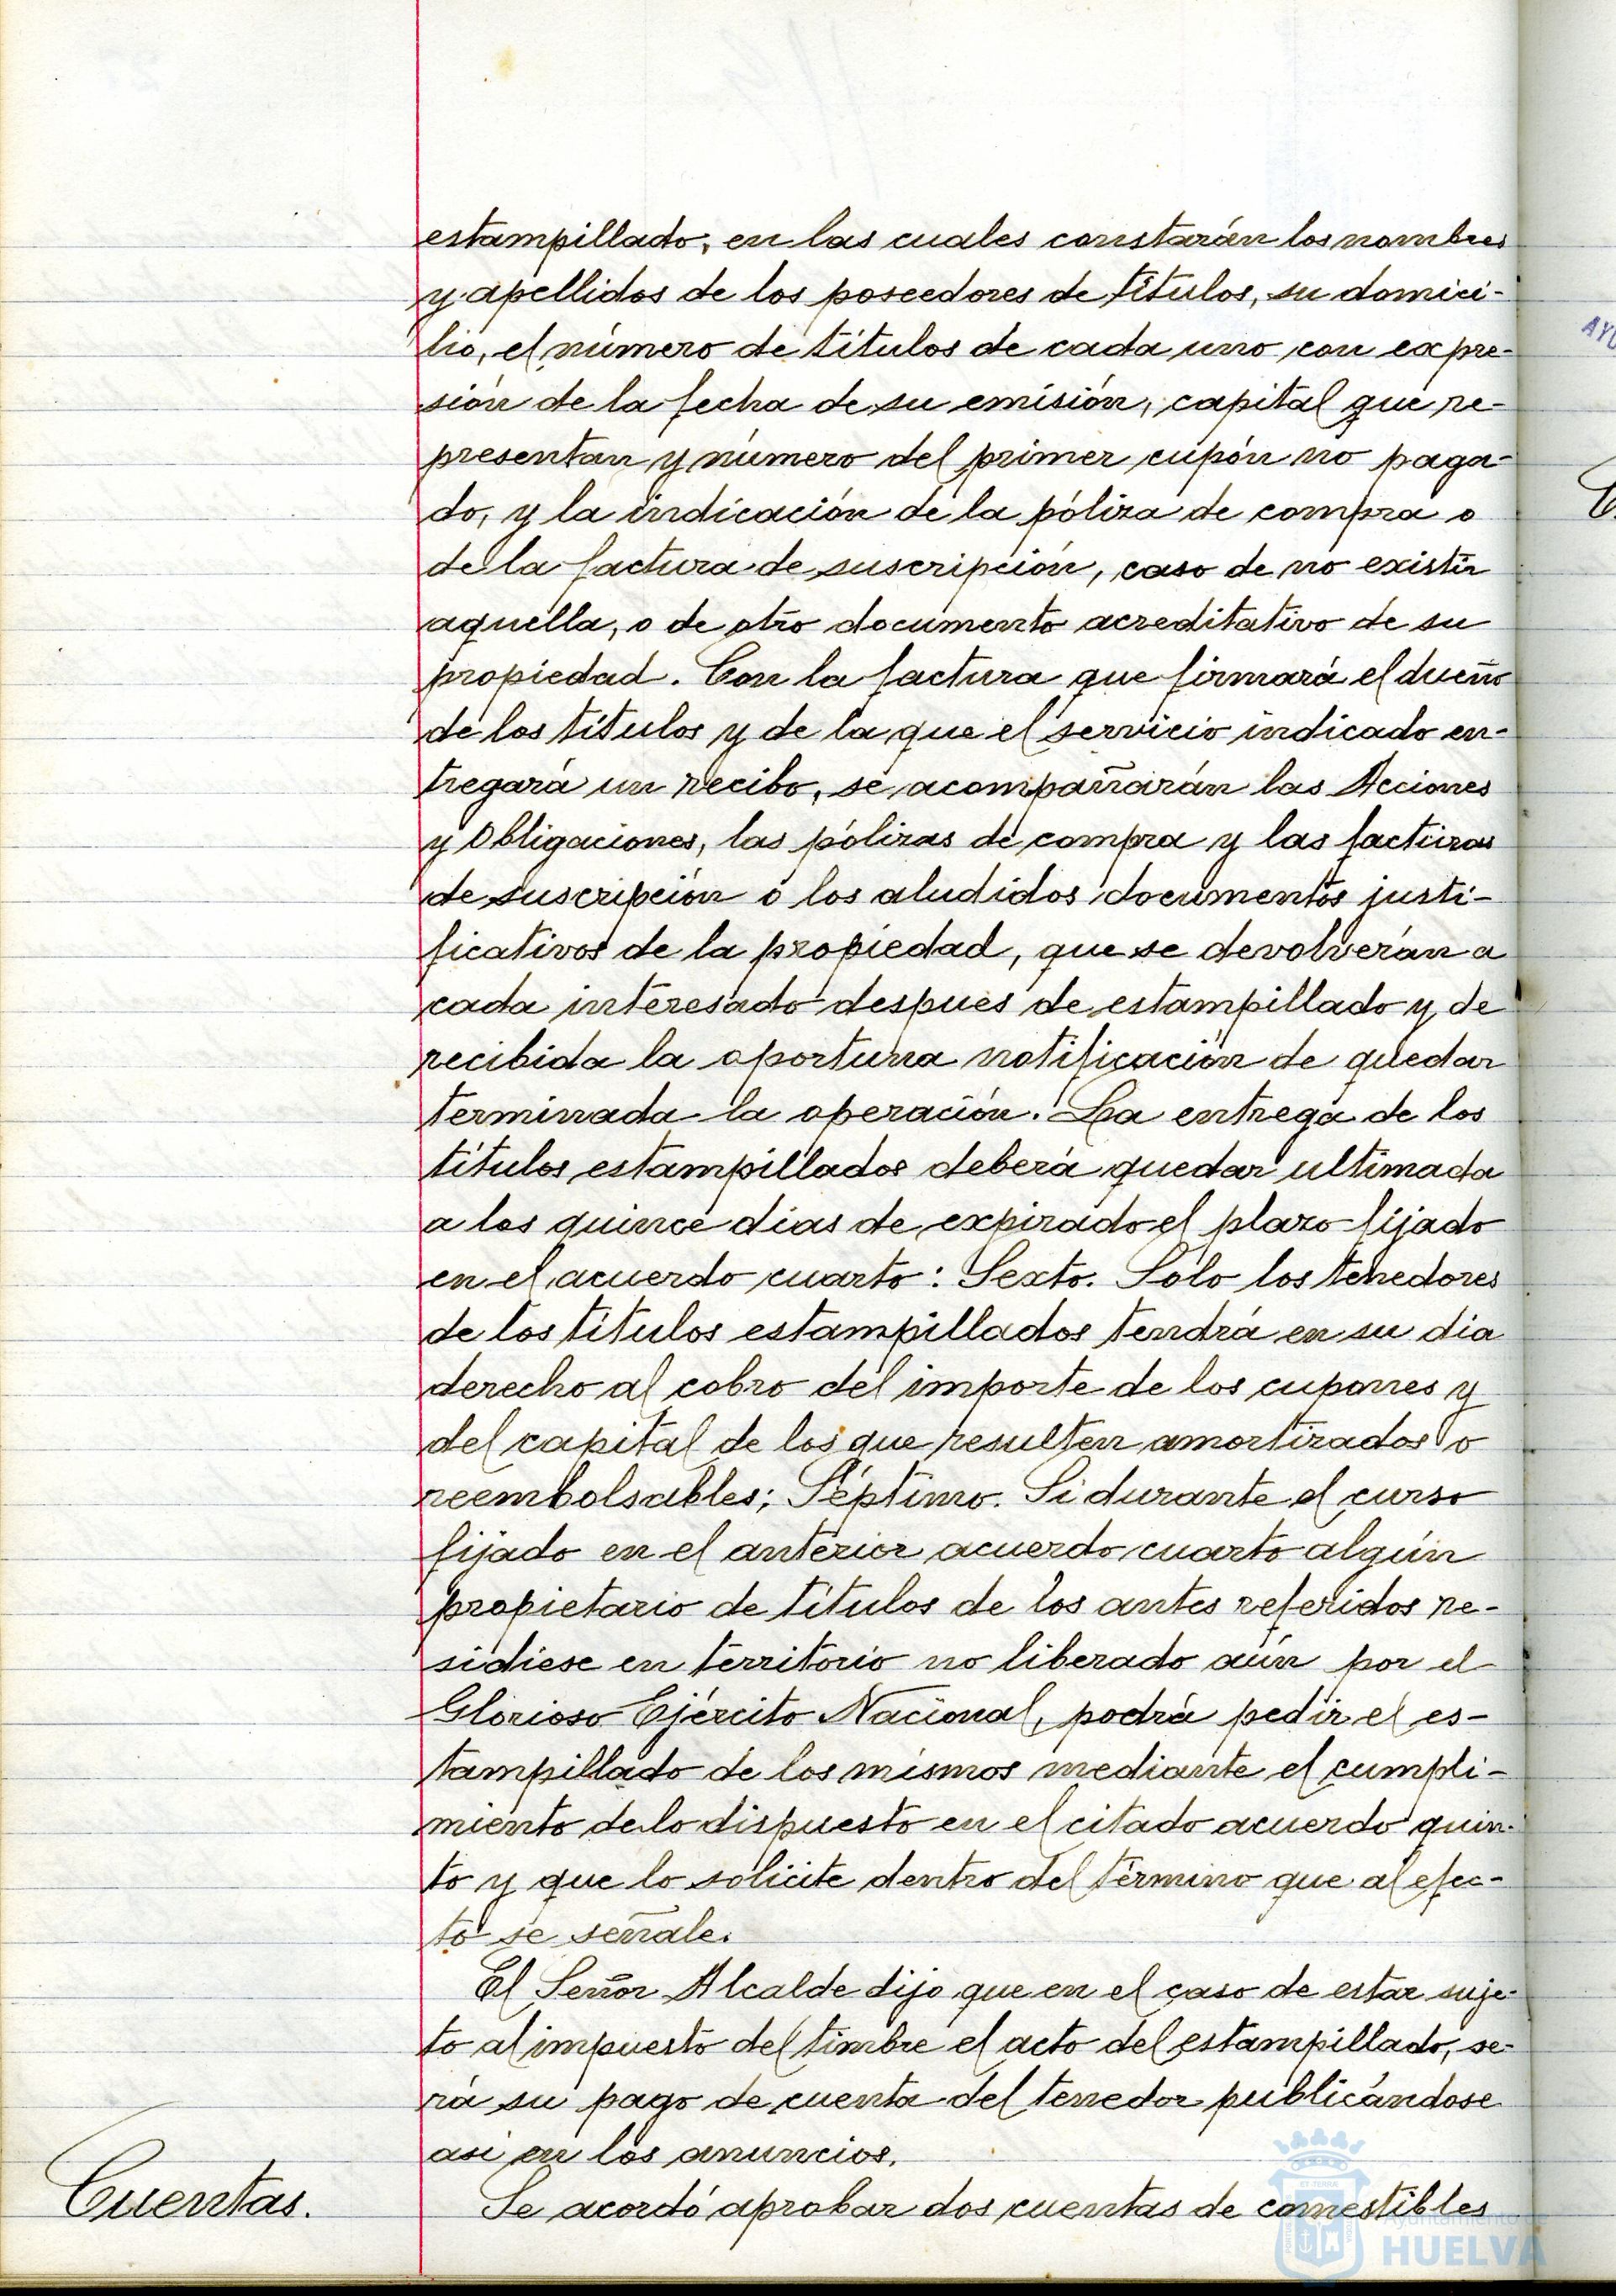 estampillado, en las cuales constarán los nombres
y apellidos de los poseedores de títulos, su domici-
lio, el número de títulos de cada uno con expre-
sión de la fecha de su emisión, capital que re-
presentan y número del primer cupón no paga-
do, y la indicación de la póliza de compra o
de la factura de suscripción, caso de no existir
aquella, o de otro documento acreditativo de su
propiedad. Con la factura que firmará el dueño
de los títulos y de la que el servicio indicado en-
tregará un recibo, se acompañarán las Acciones
y Obligaciones, las pólizas de compra y las facturas
de suscripción o los aludidos documentos justi-
ficativos de la propiedad, que se devolverán a
cada interesado después de estampillado y de
recibida la oportuna notificación de quedar
terminada la operación. La entrega de los
títulos estampillados deberá quedar ultimada
a los quince días de expirado el plazo fijado
en el acuerdo cuarto: Sexto. Sólo los tenedores
de los títulos estampillados tendrá en su dia
derecho al cobro del importe de los cupones y
del capital de los que resulten amortizados o
reembolsables; Séptimo. Si durante el curso
fijado en el anterior acuerdo cuarto algún
propietario de títulos de los antes referidos re-
sidiese en territorio no liberado aún por el
Glorioso Ejército Nacional, podrá pedir el es-
tampillado de los mismos mediante el cumpli-
miento de lo dispuesto en el citado acuerdo quin-
to y que lo solicite dentro del término que al efec-
to se señale.
El Señor Alcalde dijo que en el caso de estar suje-
to al impuesto del timbre el acto del estampillado, se-
rá su pago de cuenta del tenedor publicándose
así en los anuncios.
Cuentas.
Se acordó aprobar dos cuentas de comestibles
Ayuntamiento de
HUELVA